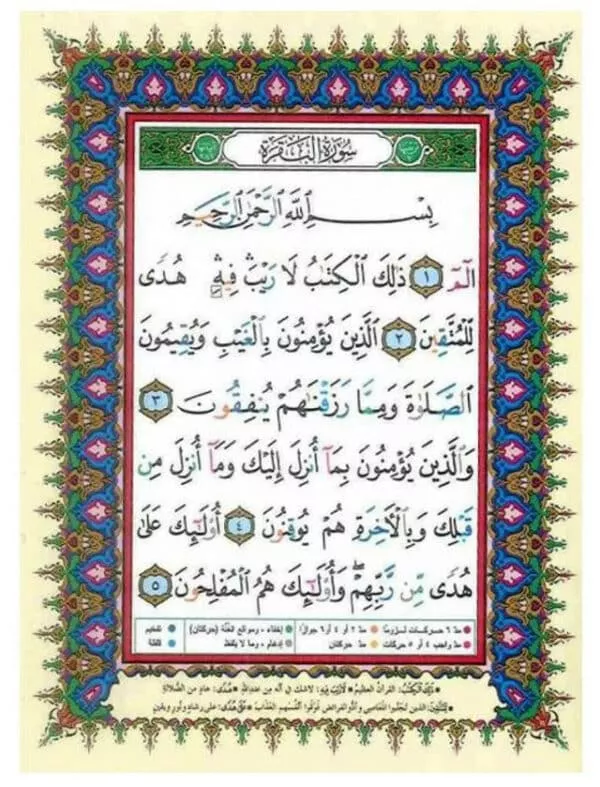 سورة البقرة
بِسْمِ ٱللَّهِ ٱلرَّحْمَٰنِ ٱلرَّحِيمِ
الٓمٓ ١ ذَٰلِكَ ٱلْكِتَٰبُ لَا رَيْبَ ۛ فِيهِ ۛ هُدًى
لِّلْمُتَّقِينَ ٢ ٱلَّذِينَ يُؤْمِنُونَ بِٱلْغَيْبِ وَيُقِيمُونَ
ٱلصَّلَوٰةَ وَمِمَّا رَزَقْنَٰهُمْ يُنفِقُونَ ٣
وَٱلَّذِينَ يُؤْمِنُونَ بِمَآ أُنزِلَ إِلَيْكَ وَمَآ أُنزِلَ مِن
قَبْلِكَ وَبِٱلْءَاخِرَةِ هُمْ يُوقِنُونَ ٤ أُو۟لَٰٓئِكَ عَلَىٰ
هُدًى مِّن رَّبِّهِمْ ۖ وَأُو۟لَٰٓئِكَ هُمُ ٱلْمُفْلِحُونَ ٥
مدّ ٦ حركات لزوماً مدّ ٢ أو ٤ أو ٦ جوازاً إخفاء، ومواقع الغُنَّة (حركتان) تفخيم
مدّ واجب ٤ أو ٥ حركات مدّ حركتان إدغام، وما لا يُلفظ قلقلة
ذلك الكتاب: القرآن العظيم لا ريب فيه: لا شك في أنه من عند الله هدى: هادٍ من الضلالة